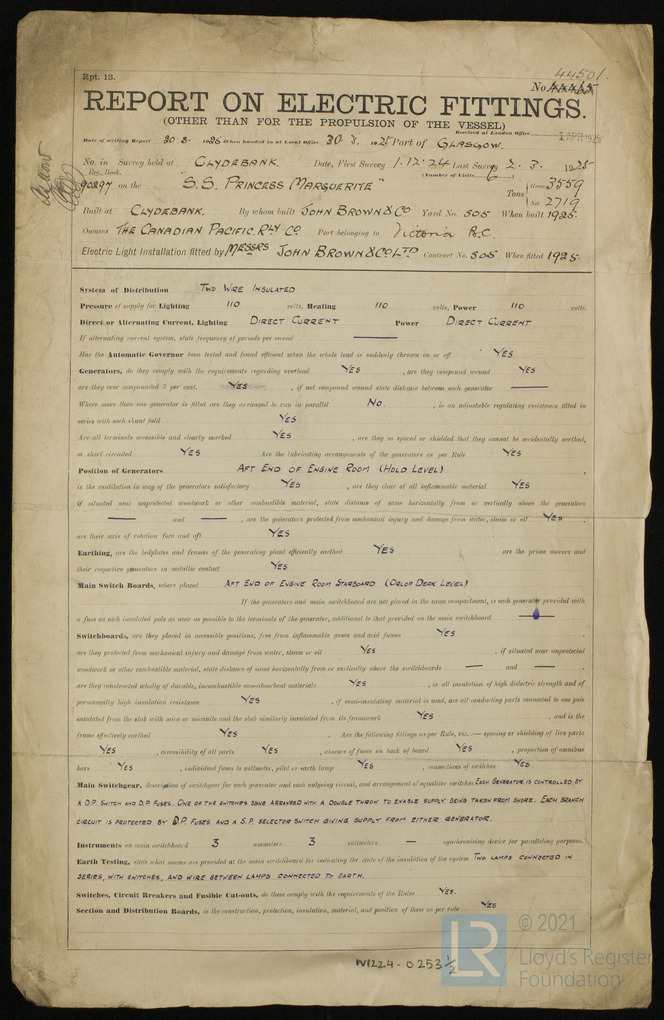 Rpt. 13.
44501.
No. 44465
REPORT ON ELECTRIC FITTINGS.
(OTHER THAN FOR THE PROPULSION OF THE VESSEL)
Received at London Office 1 APR 1925
Date of writing Report 30·3· 1925 When handed in at Local Office 30·3· 1925 Port of GLASGOW.
No. in Survey held at CLYDEBANK. Date, First Survey 1·12·24 Last Survey 2·3· 1925
Reg. Book. (Number of Visits 6)
90297 on the "S.S. PRINCESS MARGUERITE" Tons Gross 3559
Net 2719
Built at CLYDEBANK. By whom built JOHN BROWN & CO Yard No. 505 When built 1925.
Owners THE CANADIAN PACIFIC RLY CO. Port belonging to Victoria B.C.
Electric Light Installation fitted by MESSRS JOHN BROWN & CO LTD Contract No. 505 When fitted 1925.
System of Distribution TWO WIRE INSULATED
Pressure of supply for Lighting 110 volts, Heating 110 volts, Power 110 volts.
Direct or Alternating Current, Lighting DIRECT CURRENT Power DIRECT CURRENT
If alternating current system, state frequency of periods per second —
Has the Automatic Governor been tested and found efficient when the whole load is suddenly thrown on or off YES.
Generators, do they comply with the requirements regarding overload YES , are they compound wound YES
are they over compounded 5 per cent. YES , if not compound wound state distance between each generator —
Where more than one generator is fitted are they arranged to run in parallel NO. , is an adjustable regulating resistance fitted in
series with each shunt field YES
Are all terminals accessible and clearly marked YES , are they so spaced or shielded that they cannot be accidentally earthed,
or short circuited YES Are the lubricating arrangements of the generators as per Rule YES
Position of Generators AFT END OF ENGINE ROOM (HOLD LEVEL) ,
is the ventilation in way of the generators satisfactory YES , are they clear of all inflammable material YES
if situated near unprotected woodwork or other combustible material, state distance of same horizontally from or vertically above the generators
— and — , are the generators protected from mechanical injury and damage from water, steam or oil YES ,
are their axis of rotation fore and aft YES
Earthing, are the bedplates and frames of the generating plant efficiently earthed YES are the prime movers and
their respective generators in metallic contact YES
Main Switch Boards, where placed AFT END OF ENGINE ROOM STARBOARD (ORLOP DECK LEVEL)
If the generators and main switchboard are not placed in the same compartment, is each generator provided with
a fuse on each insulated pole as near as possible to the terminals of the generator, additional to that provided on the main switchboard —
Switchboards, are they placed in accessible positions, free from inflammable gases and acid fumes YES ,
are they protected from mechanical injury and damage from water, steam or oil YES , if situated near unprotected
woodwork or other combustible material, state distance of same horizontally from or vertically above the switchboards — and — ,
are they constructed wholly of durable, incombustible non-absorbent materials YES , is all insulation of high dielectric strength and of
permanently high insulation resistance YES , if semi-insulating material is used, are all conducting parts connected to one pole
insulated from the slab with mica or micanite and the slab similarly insulated from its framework YES , and is the
frame effectively earthed YES . Are the following fittings as per Rule, viz.:— spacing or shielding of live parts
YES , accessibility of all parts YES , absence of fuses on back of board YES , proportion of omnibus
bars YES , individual fuses to voltmeter, pilot or earth lamp YES , connections of switches YES
Main Switchgear, description of switchgear for each generator and each outgoing circuit, and arrangement of equalizer switches EACH GENERATOR IS CONTROLLED BY
A D.P. SWITCH AND D.P. FUSES. ONE OF THE SWITCHES BEING ARRANGED WITH A DOUBLE THROW TO ENABLE SUPPLY BEING TAKEN FROM SHORE. EACH BRANCH
CIRCUIT IS PROTECTED BY D.P. FUSES AND A S.P. SELECTOR SWITCH GIVING SUPPLY FROM EITHER GENERATOR.
Instruments on main switchboard 3 ammeters 3 voltmeters — synchronising device for paralleling purposes.
Earth Testing, state what means are provided at the main switchboard for indicating the state of the insulation of the system TWO LAMPS CONNECTED IN
SERIES, WITH SWITCHES, AND WIRE BETWEEN LAMPS CONNECTED TO EARTH.
Switches, Circuit Breakers and Fusible Cut-outs, do these comply with the requirements of the Rules YES.
Section and Distribution Boards, is the construction, protection, insulation, material, and position of these as per rule YES
W1224-0253 1/2
LR
© 2021
Lloyd's Register
Foundation